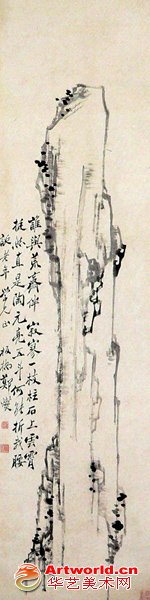 誰與荒齋伴寂寥一枝柱石上雲霄
挺然直是陶元亮五斗何能折我腰
老年學兄正 板橋鄭燮
Artworld.cn
华艺美术网